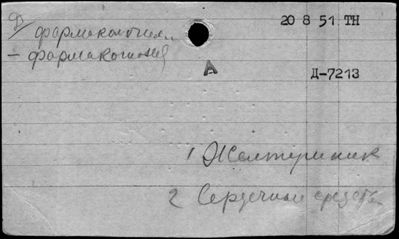 Ф/ фармакология
20 8 51 ТН
– фармакогнозия
А
Д-7213
1 Желтушник
2 Сердечные средства